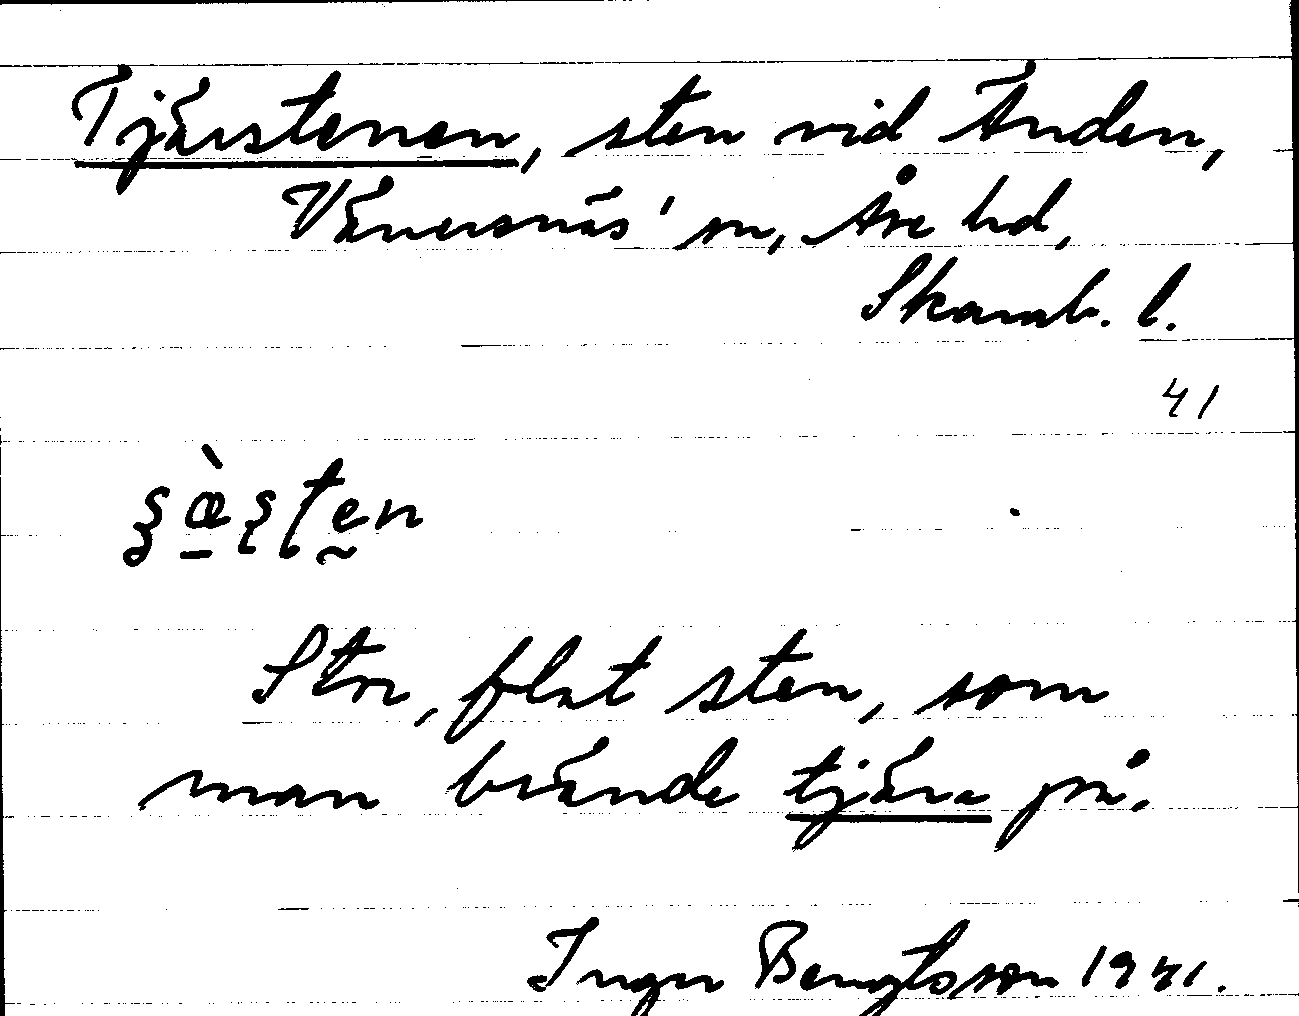 Tjärstenen, sten vid Änden,
Vänersnäs' sn, Åse hd,
Skarab. l.
41
Stor, flat sten, som
man brände tjära på.
Inger Bengtsson 1941.